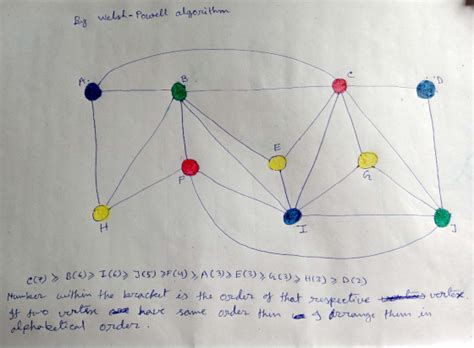 By Welsh-Powell algorithm
A B C D
E
F G
H I J
C(7) ⩾ B(6) ⩾ I(6) ⩾ J(5) ⩾ F(4) ⩾ A(3) ⩾ E(3) ⩾ G(3) ⩾ H(3) ⩾ D(2)
Number within the bracket is the order of that respective vertex
If two vertex have same order then arrange them in
alphabetical order.